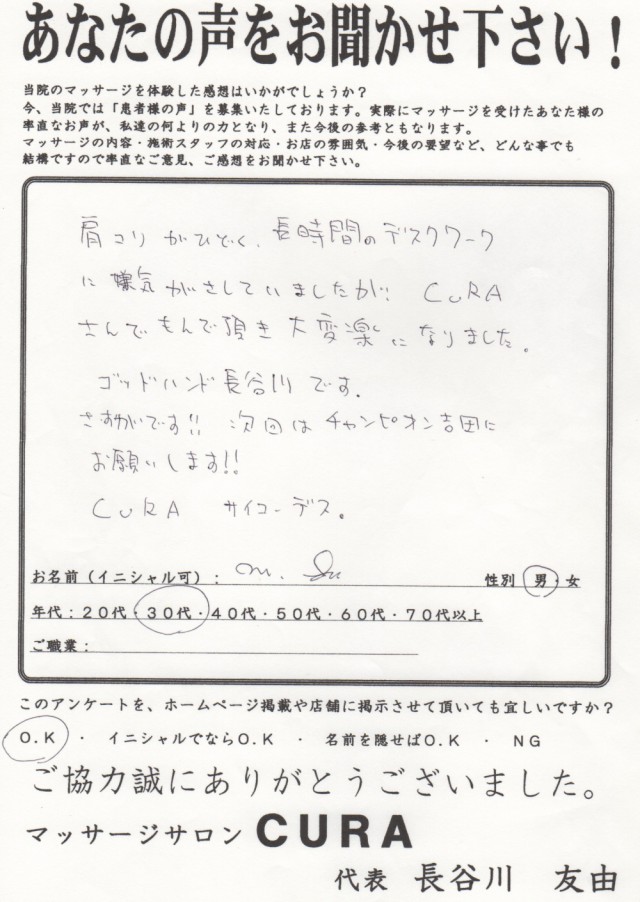 あなたの声をお聞かせ下さい！
当院のマッサージを体験した感想はいかがでしょうか？
今、当院では「患者様の声」を募集いたしております。実際にマッサージを受けたあなた様の
率直なお声が、私達の何よりの力となり、また今後の参考ともなります。
マッサージの内容・施術スタッフの対応・お店の雰囲気・今後の要望など、どんな事でも
結構ですので率直なご意見、ご感想をお聞かせ下さい。
肩コリがひどく、長時間のデスクワーク
に嫌気がさしていましたが!! CURA
さんでもんで頂き大変楽になりました。
ゴッドハンド長谷川です.
さすがです!! 次回はチャンピオン吉田に
お願いします!!
CURA サイコーデス。
お名前（イニシャル可）： 性別 男・女
年代：２０代・３０代・４０代・５０代・６０代・７０代以上
ご職業：
このアンケートを、ホームページ掲載や店舗に掲示させて頂いても宜しいですか？
O.K ・ イニシャルでならO.K ・ 名前を隠せばO.K ・ NG
ご協力誠にありがとうございました。
マッサージサロン CURA
代表 長谷川 友由